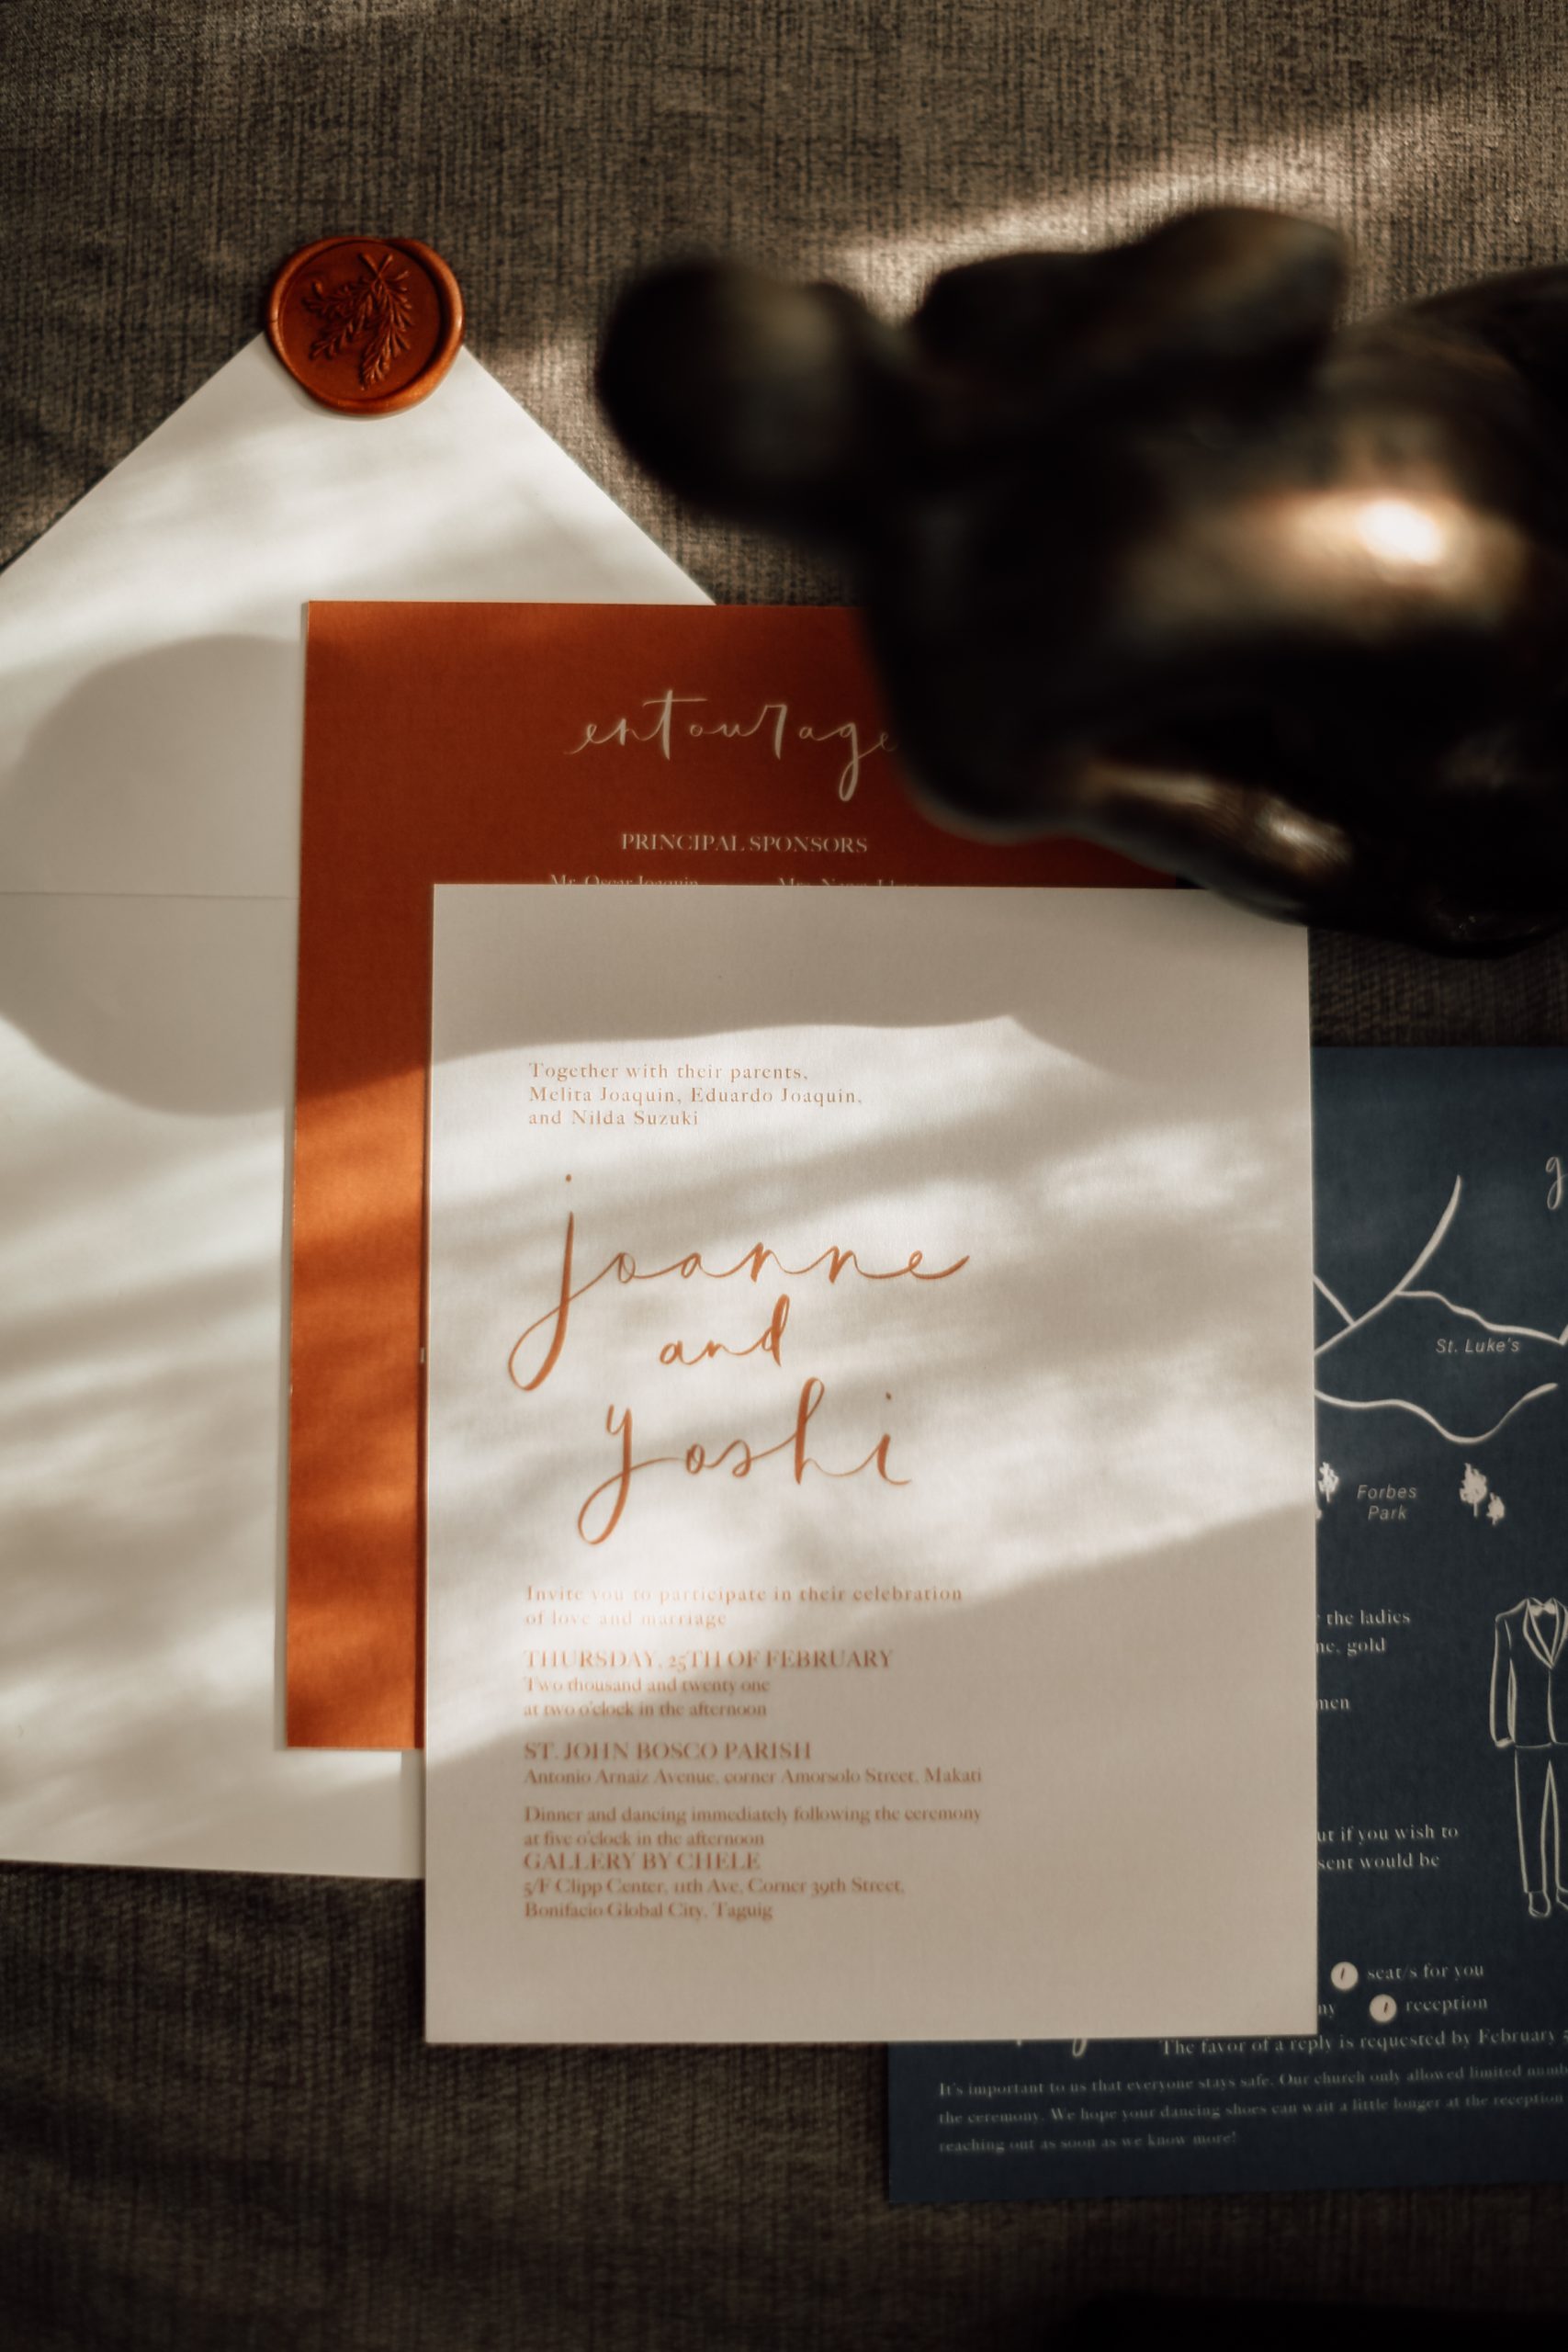 entourage
PRINCIPAL SPONSORS
Mr. Oscar Joaquin
Together with their parents,
Melita Joaquin, Eduardo Joaquin,
and Nilda Suzuki
joanne
and
yoshi
Invite you to participate in their celebration
of love and marriage
THURSDAY, 25TH OF FEBRUARY
Two thousand and twenty one
at two o'clock in the afternoon
ST. JOHN BOSCO PARISH
Antonio Arnaiz Avenue, corner Amorsolo Street, Makati
Dinner and dancing immediately following the ceremony
at five o'clock in the afternoon
GALLERY BY CHELE
5/F Clipp Center, 11th Ave, Corner 39th Street,
Bonifacio Global City, Taguig
g
St. Luke's
Forbes
Park
the ladies
gold
men
if you wish to
sent would be
1 seat/s for you
1 reception
The favor of a reply is requested by February
It's important to us that everyone stays safe. Our church only allowed limited numb
the ceremony. We hope your dancing shoes can wait a little longer at the reception
reaching out as soon as we know more!